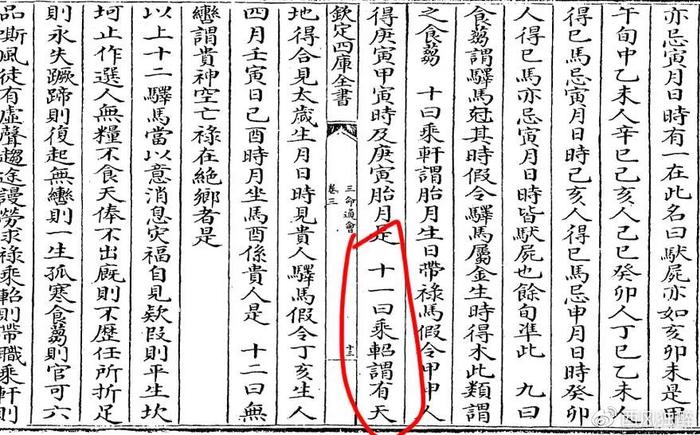 亦忌寅月日時有一在此名曰䭾屍亦如亥卯未是甲
午旬中乙未人辛巳己亥人己巳癸卯人丁巳乙未人
得巳馬忌寅月日時己亥人得巳馬忌申月日時癸卯
人得巳馬亦忌寅月日時皆䭾屍也餘旬準此　九曰
食蒭謂驛馬尅其時假令驛馬屬金生時得木此類謂
之食蒭　十曰乘軒謂胎月生日帶祿馬假令甲申人
得庚寅甲寅時及庚寅胎月是　十一曰乘軺謂有天
欽定四庫全書
三命通會
卷三
十三
地得合見太歲生月日時見貴人驛馬假令丁亥生人
四月壬寅日己酉時月坐馬酉係貴人是　十二曰無
轡謂貴神空亡祿在絶鄉者是
以上十二驛馬當以意消息灾福自見欵段則平生坎
坷止作選人無糧不食天俸不出廐則不歴任所折足
則永失蹶蹄則復起無轡則一生孤寒食蒭則官可六
品斯風徒有虛聲趨途謾勞求祿乘軺則帶職乘軒則